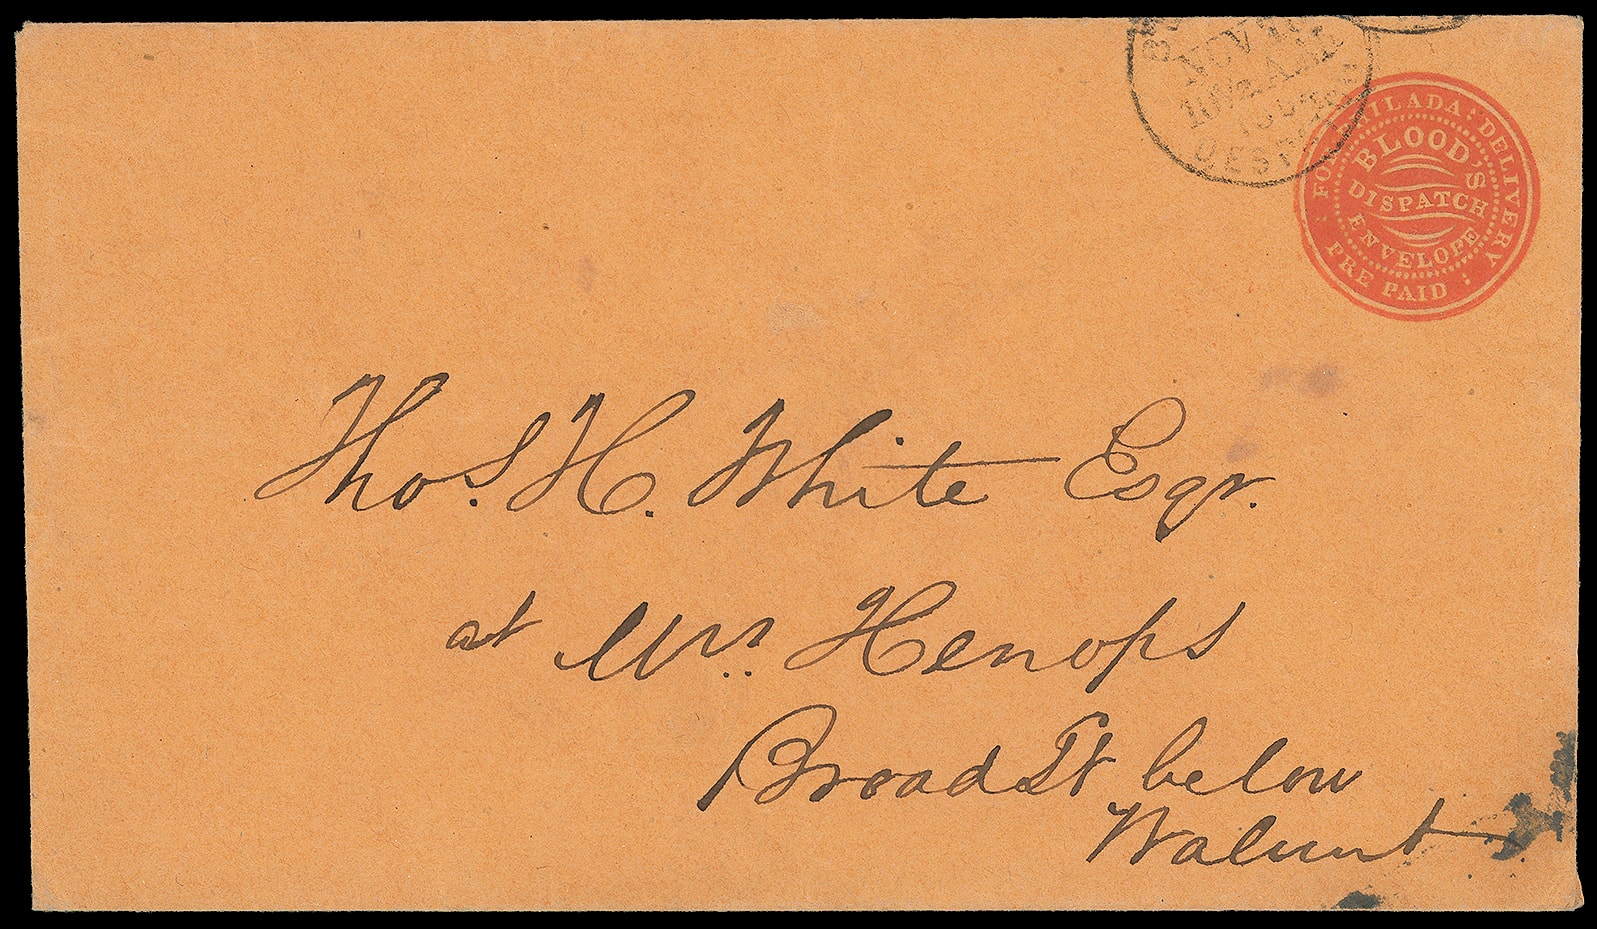 NOV
10½ A.M
DESP
FOR PHILADA: DELIVERY
BLOOD'S
DISPATCH
ENVELOPE
PRE PAID
Thos. H. White Esqr.
at Mrs. Henops
Broad St below
Walnut